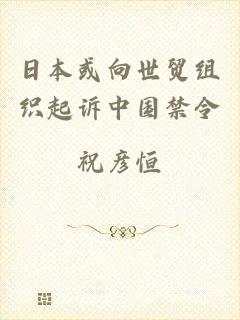 日本或向世贸组
织起诉中国禁令
祝彦恒